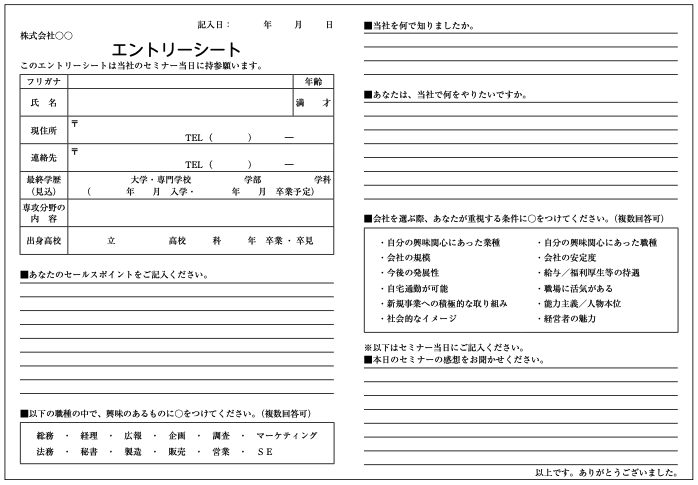 記入日： 年 月 日
株式会社〇〇
エントリーシート
このエントリーシートは当社のセミナー当日に持参願います。
フリガナ 年齢
氏 名 満 才
現住所 〒
TEL（ ） ―
連絡先 〒
TEL（ ） ―
最終学歴 大学・専門学校 学部 学科
（見込） （ 年 月 入学・ 年 月 卒業予定）
専攻分野の
内 容
出身高校 立 高校 科 年 卒業・卒見
■あなたのセールスポイントをご記入ください。
■以下の職種の中で、興味のあるものに〇をつけてください。（複数回答可）
総務 ・ 経理 ・ 広報 ・ 企画 ・ 調査 ・ マーケティング
法務 ・ 秘書 ・ 製造 ・ 販売 ・ 営業 ・ ＳＥ
■当社を何で知りましたか。
■あなたは、当社で何をやりたいですか。
■会社を選ぶ際、あなたが重視する条件に〇をつけてください。（複数回答可）
・自分の興味関心にあった業種 ・自分の興味関心にあった職種
・会社の規模 ・会社の安定度
・今後の発展性 ・給与／福利厚生等の待遇
・自宅通勤が可能 ・職場に活気がある
・新規事業への積極的な取り組み ・能力主義／人物本位
・社会的なイメージ ・経営者の魅力
※以下はセミナー当日にご記入ください。
■本日のセミナーの感想をお聞かせください。
以上です。ありがとうございました。